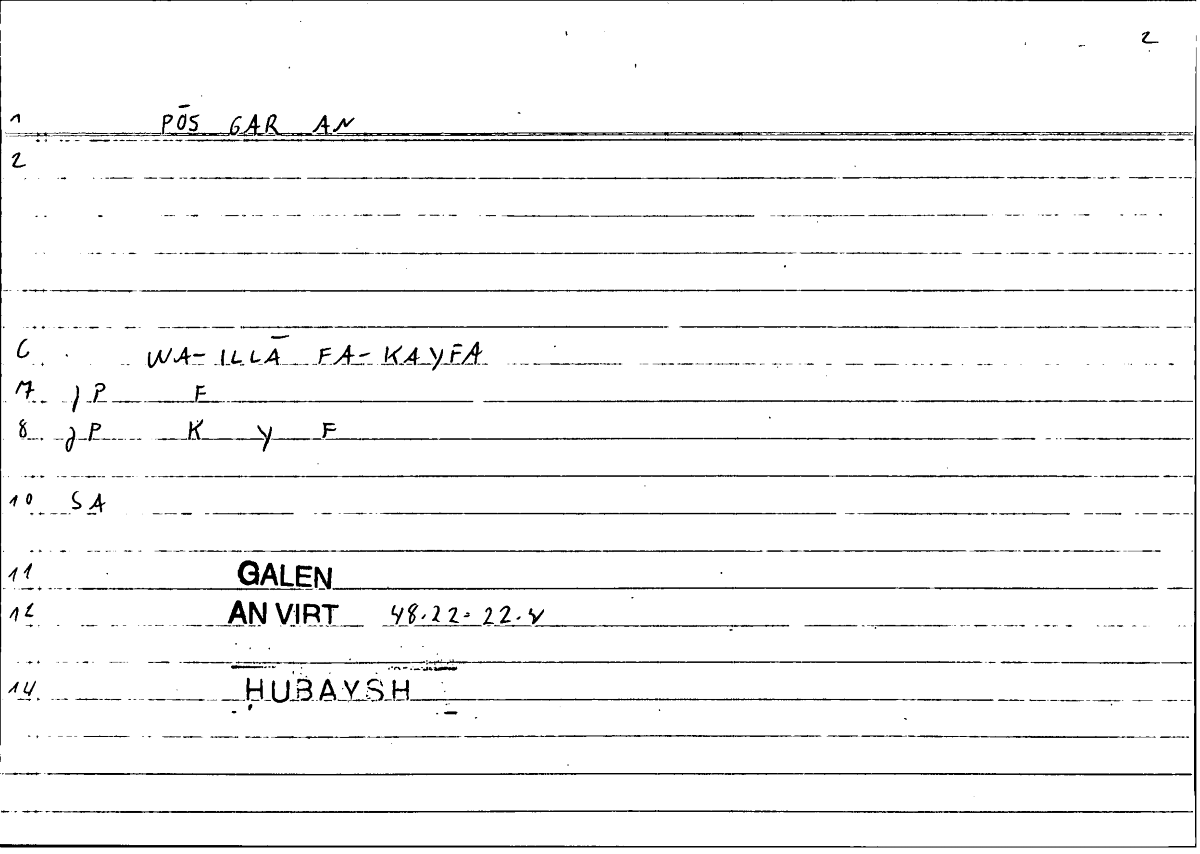 2
1 PŌS GAR AN
2
6 WA-ILLĀ FA-KAYFA
7 jP F
8 jP K Y F
10 SA
11 GALEN
12 AN VIRT 48.22= 22.v
14 ḤUBAYSH